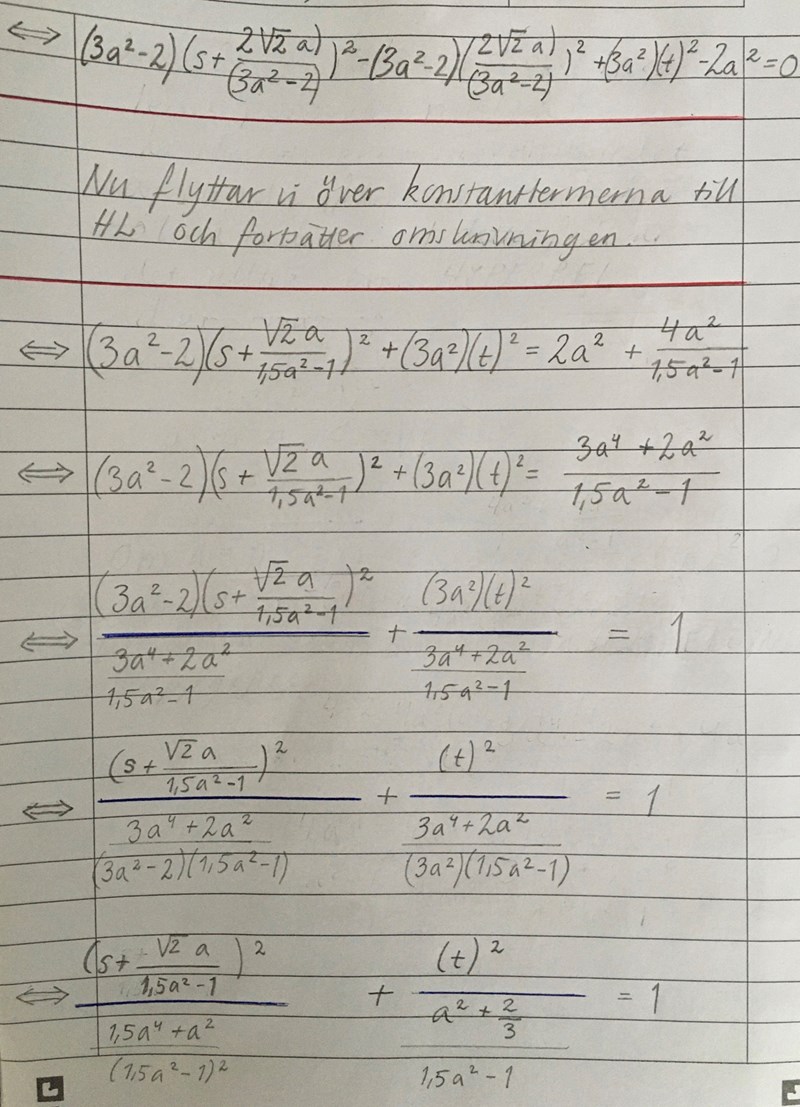 ⟺ (3a²-2)(s+2√2 a)/(3a²-2))²-(3a²-2)(2√2 a)/(3a²-2))²+(3a²)(t)²-2a²=0
Nu flyttar vi över konstanttermerna till
HL och fortsätter omskrivningen.
⟺ (3a²-2)(s+√2 a/1,5a²-1)²+(3a²)(t)²=2a²+4a²/1,5a²-1
⟺ (3a²-2)(s+√2 a/1,5a²-1)²+(3a²)(t)²=3a⁴+2a²/1,5a²-1
⟺ (3a²-2)(s+√2 a/1,5a²-1)²/(3a⁴+2a²/1,5a²-1) + (3a²)(t)²/(3a⁴+2a²/1,5a²-1) = 1
⟺ (s+√2 a/1,5a²-1)²/(3a⁴+2a²/(3a²-2)(1,5a²-1)) + (t)²/(3a⁴+2a²/(3a²)(1,5a²-1)) = 1
⟺ (s+√2 a/1,5a²-1)²/(1,5a⁴+a²/(1,5a²-1)²) + (t)²/(a²+2/3/1,5a²-1) = 1